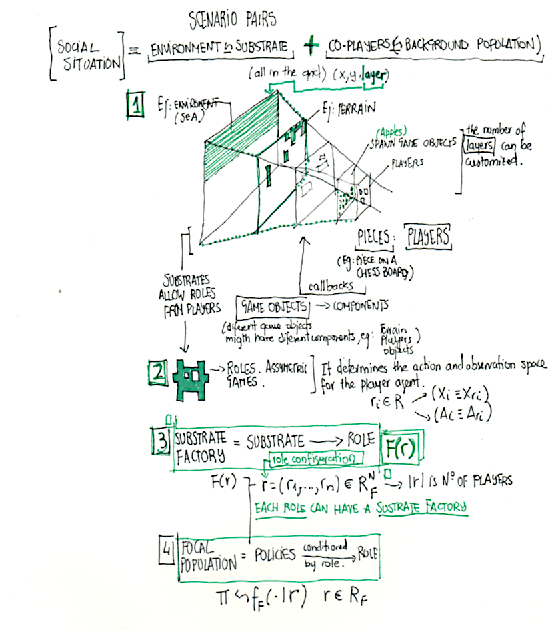 SCENARIO PAIRS
[SOCIAL SITUATION] = ENVIRONMENT SUBSTRATE + CO-PLAYERS (BACKGROUND POPULATION)
(all in the grid) (x,y,layer)
1
Ej: ENVIRONMENT (SEA)
Ej: TERRAIN
(Apples)
SPAWN GAME OBJECTS
PLAYERS
the number of layers can be customized.
PIECES: PLAYERS
(Eg: PIECE ON A CHESS BOARD)
SUBSTRATES ALLOW ROLES FROM PLAYERS
callbacks
GAME OBJECTS → COMPONENTS
(diferent game objects migth have diferent components, eg: Terrain Players objects)
2
→ ROLES. ASSYMETRIC GAMES.
It determines the action and observation space for the player agent.
ri ∈ R
(Xi ≡ Xri)
(Ai ≡ Ari)
3
SUBSTRATE FACTORY = SUBSTRATE → ROLE
F(r)
role configuration
F(r) r = (r1,...,rn) ∈ R_F^N → |r| IS Nº OF PLAYERS
EACH ROLE CAN HAVE A SUSTRATE FACTORY
4
FOCAL POPULATION = POLICIES conditioned by role. → ROLE
π ~ f_F(·|r) r ∈ R_F